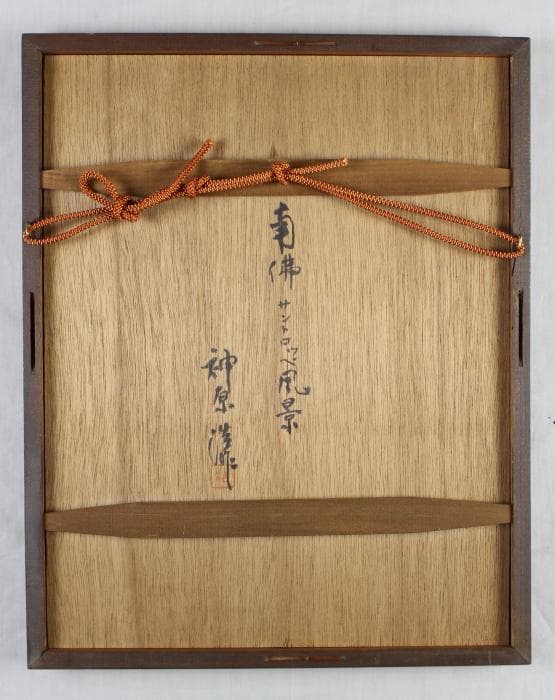 南佛 サントロッペ風景
神原浩作